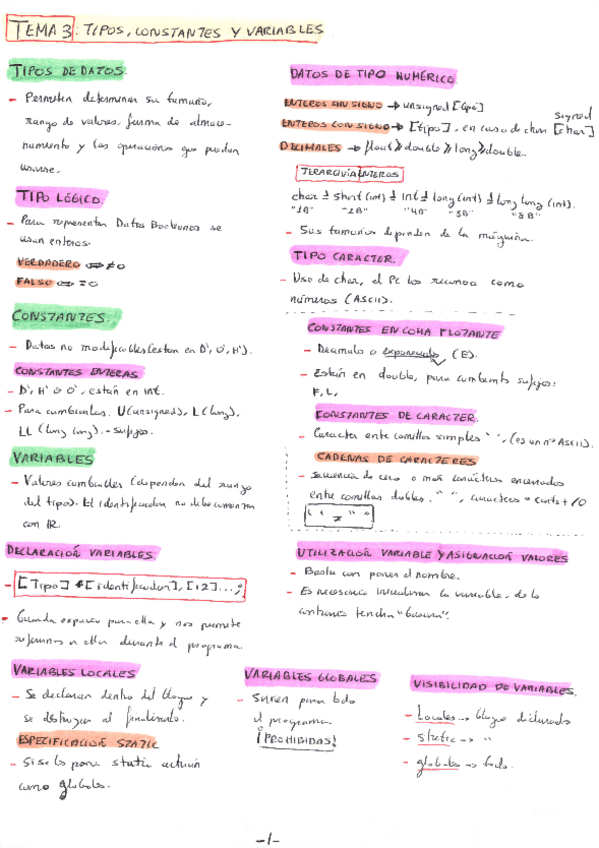 TEMA 3: TIPOS, CONSTANTES Y VARIABLES.
TIPOS DE DATOS.
- Permiten determinar su tamaño,
rango de valores, forma de almace-
namiento y las operaciones que puedan
usarse.
TIPO LÓGICO.
- Para representar Datos Booleanos se
usan enteros.
VERDADERO ⇔ ≠0
FALSO ⇔ =0
DATOS DE TIPO NUMÉRICO.
ENTEROS SIN SIGNO → unsigned [tipo]
ENTEROS CON SIGNO → [tipo], en caso de char signed [char]
DECIMALES → float » double » long » double.
JERARQUÍA ENTEROS
char ≤ short (int) ≤ int ≤ long (int) ≤ long long (int).
"1B" "2B" "4B" "8B" "8B"
- Sus tamaños dependen de la máquina.
TIPO CARACTER.
- Uso de char, el PC los reconoce como
números (ASCII).
CONSTANTES.
- Datos no modificables (están en D', O', H').
CONSTANTES ENTERAS.
- D', H' o O', están en int.
- Para cambiarlas. U (unsigned), L (long),
LL (long long). - sufijos.
CONSTANTES EN COMA FLOTANTE
- Decimales o exponenciales (E).
- Están en double, para cambiarlo sufijos:
F, L,
CONSTANTES DE CARACTER.
- Caracter entre comillas simples ' ', (es un nº ASCII).
CADENAS DE CARACTERES
- Secuencia de cero o más carácteres encerrados
entre comillas dobles. " ",
' ' ≠ " "
VARIABLES
- Valores cambiables (dependen del rango
del tipo). El identificador no debe comenzar
con
DECLARACIÓN VARIABLES.
- [Tipo] [identificador], [i2]...;
- Guarda espacio para ella y nos permite
referirnos a ella durante el programa.
UTILIZACIÓN VARIABLE Y ASIGNACIÓN VALORES
- Basta con poner el nombre.
- Es necesario inicializar la variable, de lo
contrario tendrán "basura".
VARIABLES LOCALES
- Se declaran dentro del bloque y
se destruyen al finalizarlo.
ESPECIFICACIÓN STATIC
- Si se les pone static actúan
como globales.
VARIABLES GLOBALES
- Sirven para todo
el programa.
¡PROHIBIDAS!
VISIBILIDAD DE VARIABLES.
- Locales → bloque declarado
- Static → "
- globales → todo.
-1-